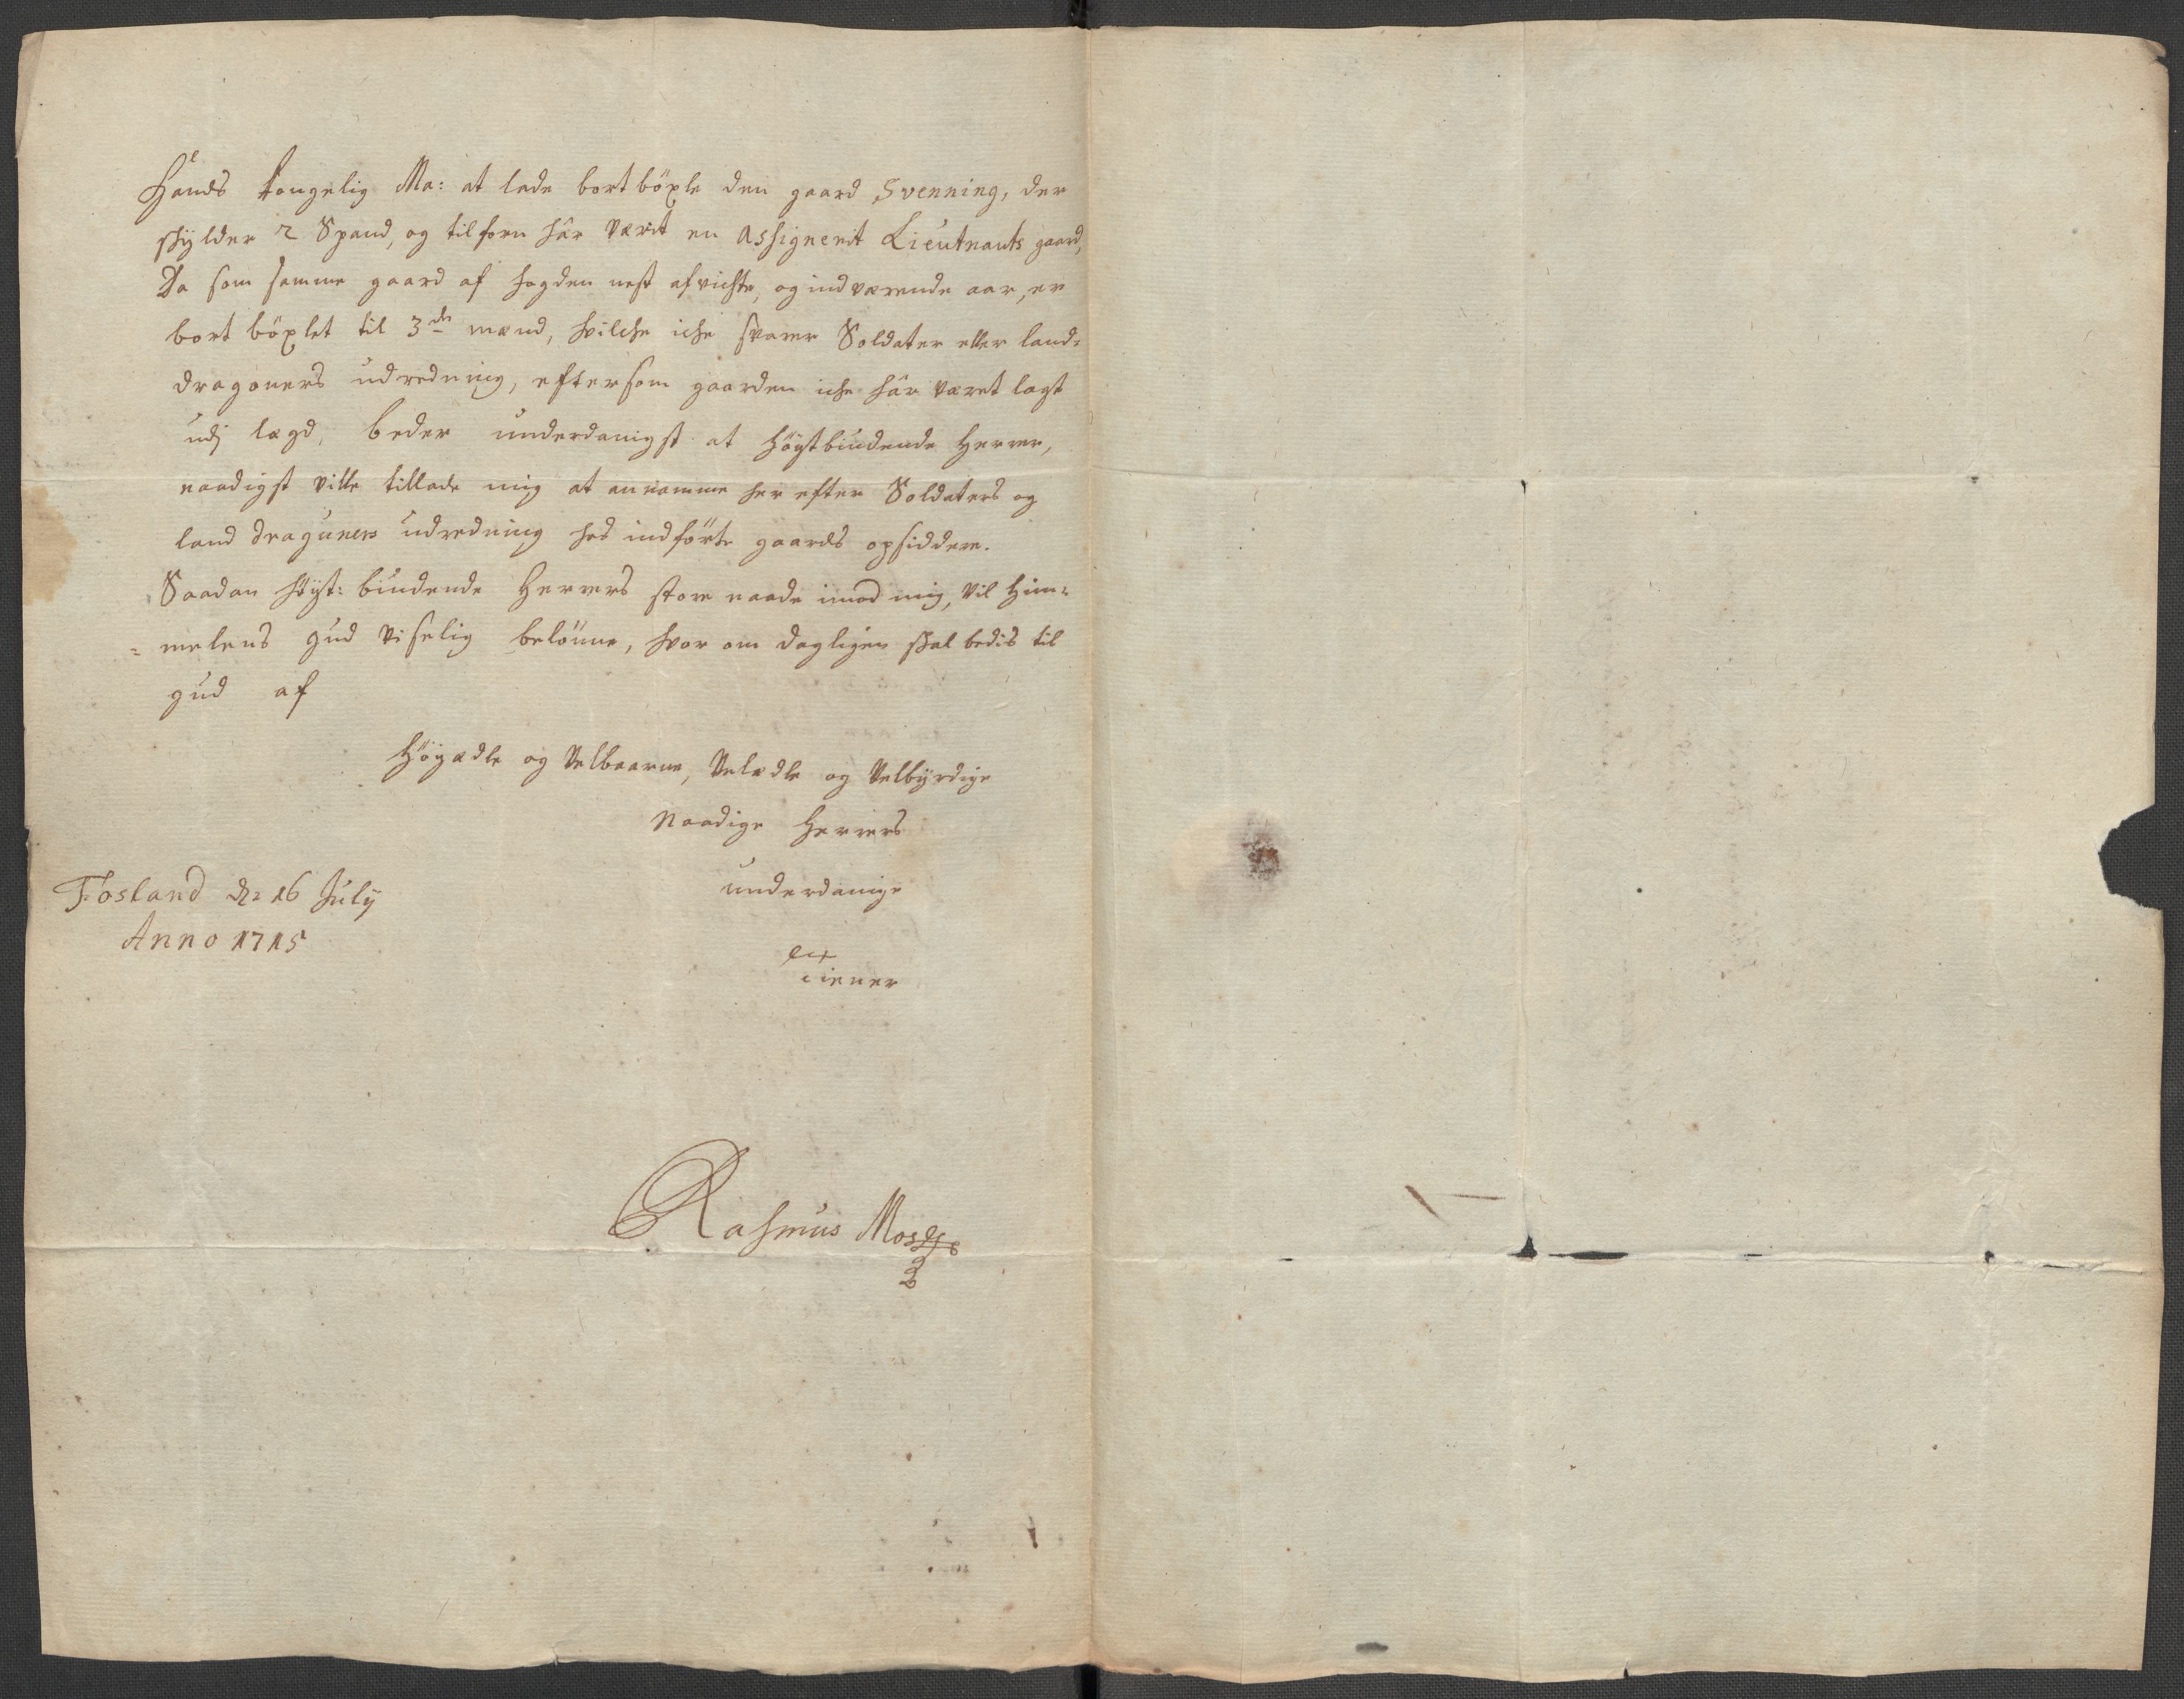 Hands Kongelig Ma: at lade bortböxle den gaard Svenning, der
skylder 2 Spand, og tilforn har værit en Assignerit Lieutnants gaard,
Da som samme gaard af fogden nest afvichte, og indværende aar, er
bort böxlet til 3de mænd, hvilche iche svarer Soldater eller land-
dragoners udredning, eftersom gaarden iche har været lagt
udj lægd, beder underdanigst at höystbiudende Herrer,
naadigst ville tillade mig at annamme her efter Soldaters og
land draguners udredning hos indförte gaards opsiddere.
Saadan höyst: biudende Herrers store naade imod mig, vil Him-
-melens Gud viselig belönne, hvor om dagligen skal bedis til
gud af
Höyædle og Velbaarne, Velædle og Velbyrdige
Naadige Herrers
underdanige
tiener
Fosland d: 16 July
Anno 1715
Rasmus